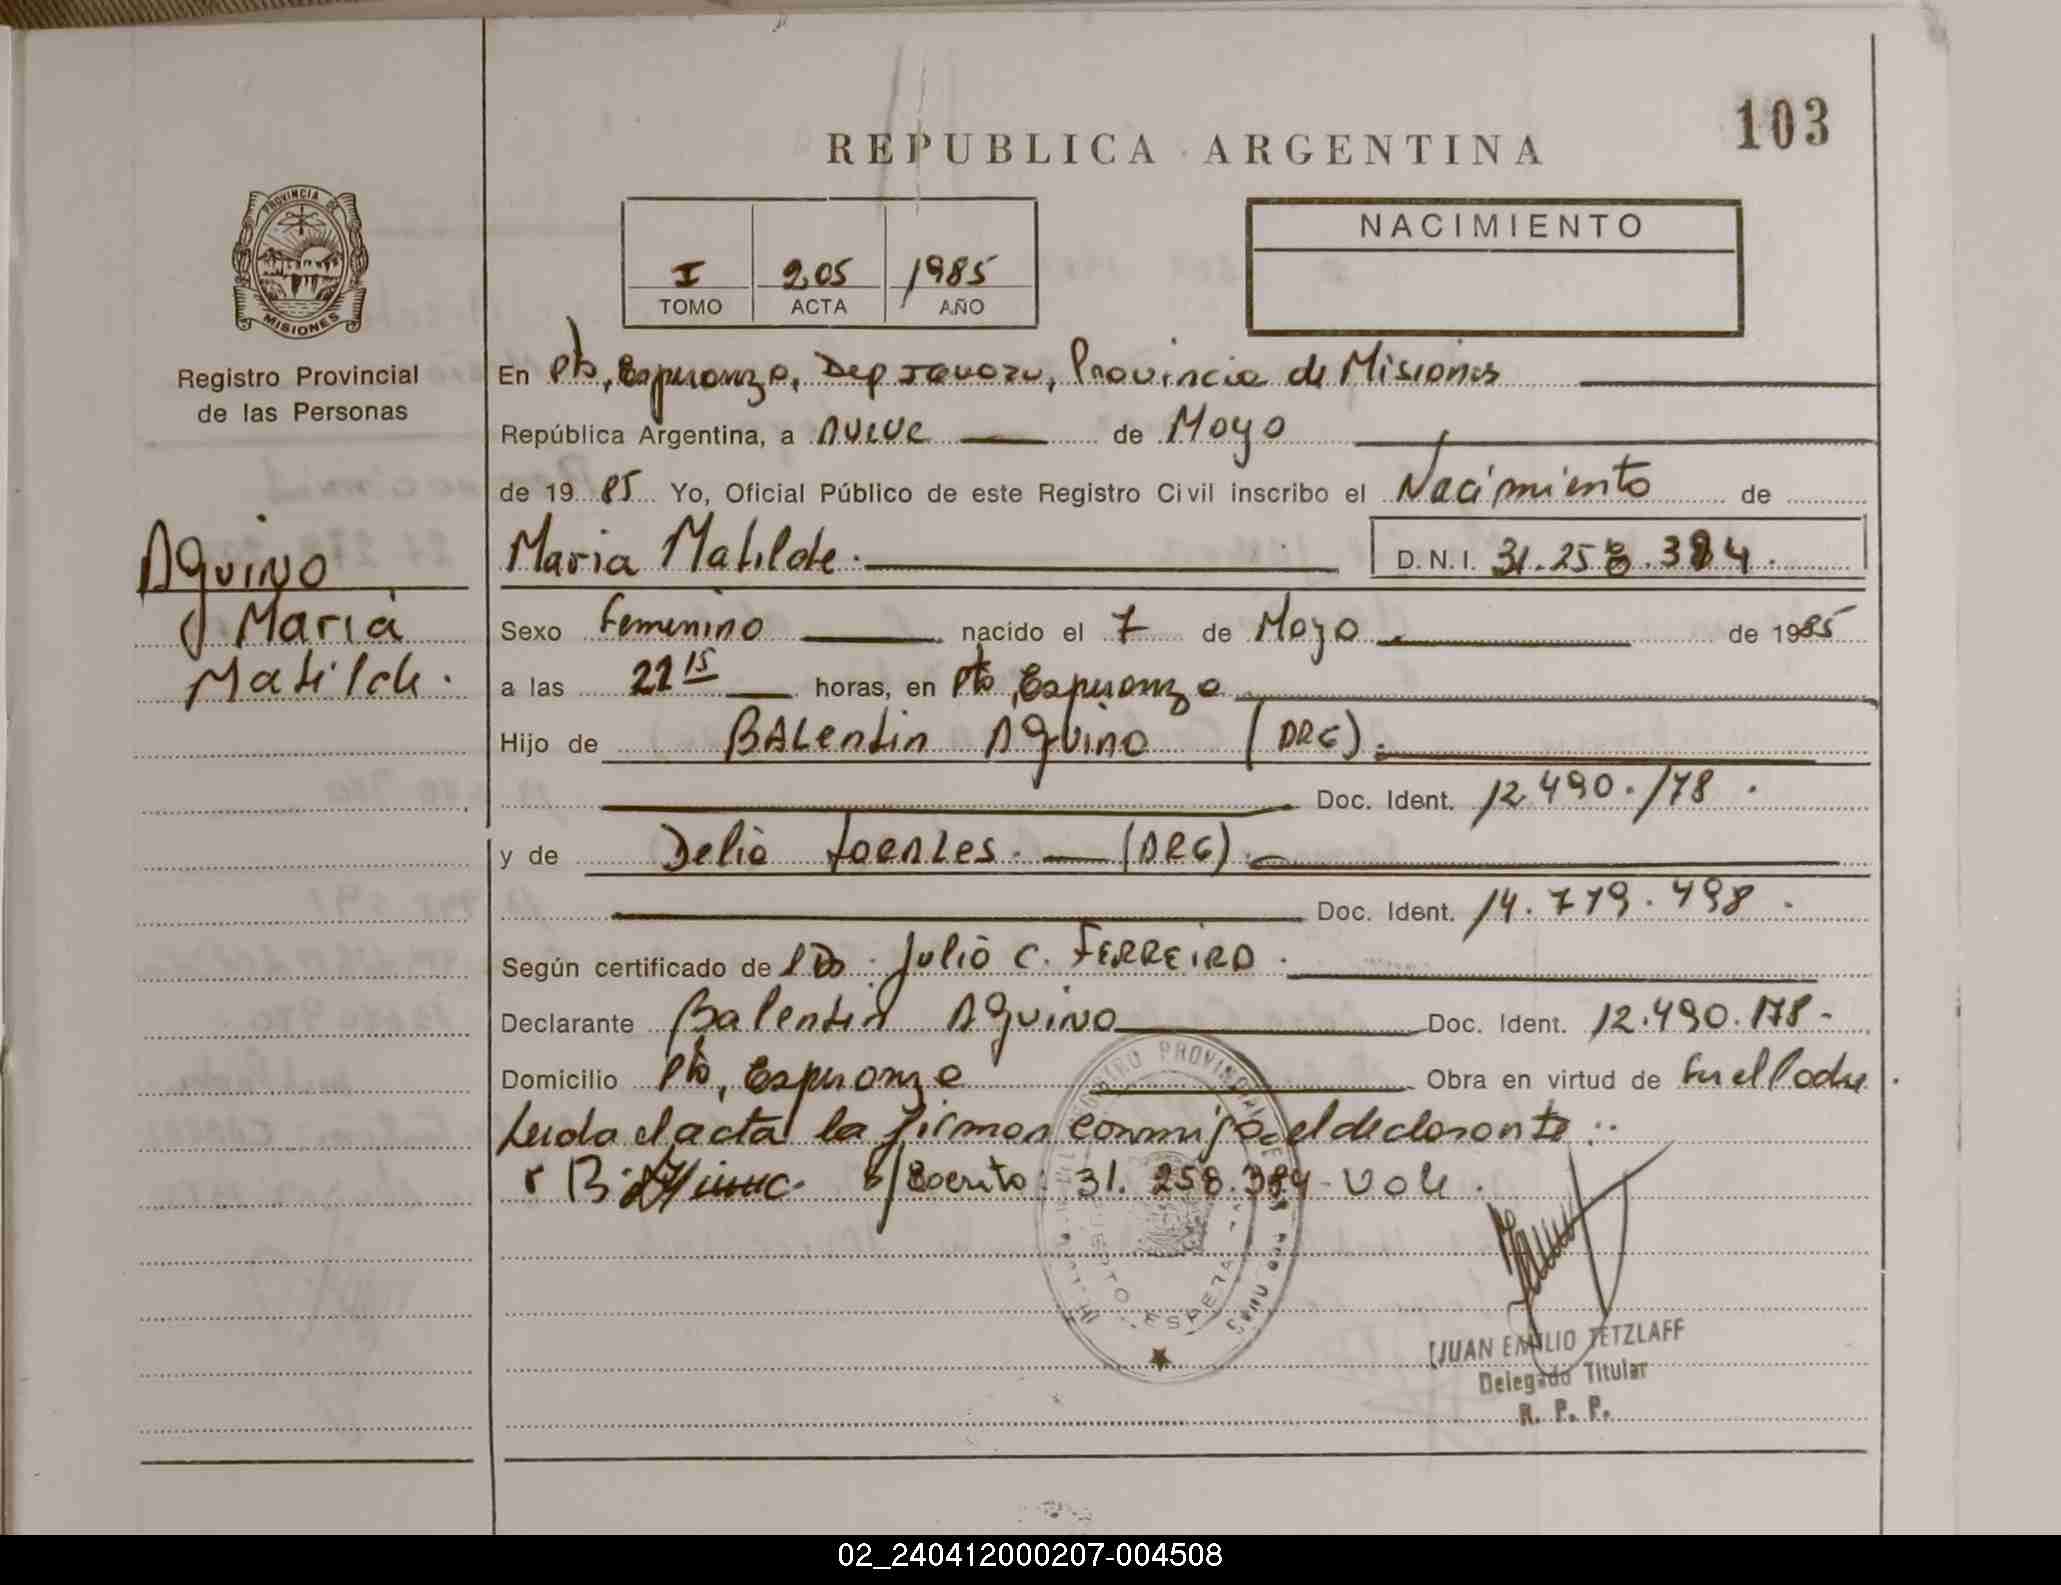 103
REPUBLICA ARGENTINA
PROVINCIA DE
MISIONES
Registro Provincial
de las Personas
I 205 1985
TOMO ACTA AÑO
NACIMIENTO
En Pto, Esperanza, Dep Iguazu, Provincia de Misiones
República Argentina, a nueve de Mayo
de 1985 Yo, Oficial Público de este Registro Civil inscribo el Nacimiento de
Aquino
Maria
Matilde.
Maria Matilde. D.N.I. 31.258.384.
Sexo Femenino nacido el 7 de Mayo de 1985
a las 22 15 horas, en Pto, Esperanza
Hijo de BALentin Aquino (ARG).
Doc. Ident. 12.490.178.
y de Delia Fuentes. (ARG).
Doc. Ident. 14.779.498.
Según certificado de Julio C. FERREIRA.
Declarante Balentin Aquino Doc. Ident. 12.490.178.
Domicilio Pto, Esperanza Obra en virtud de Ser el Padre.
Leida el acta la firman conmigo el declarante.
31.258.384 - Vale.
JUAN EMILIO TETZLAFF
Delegado Titular
R. P. P.
02_240412000207-004508